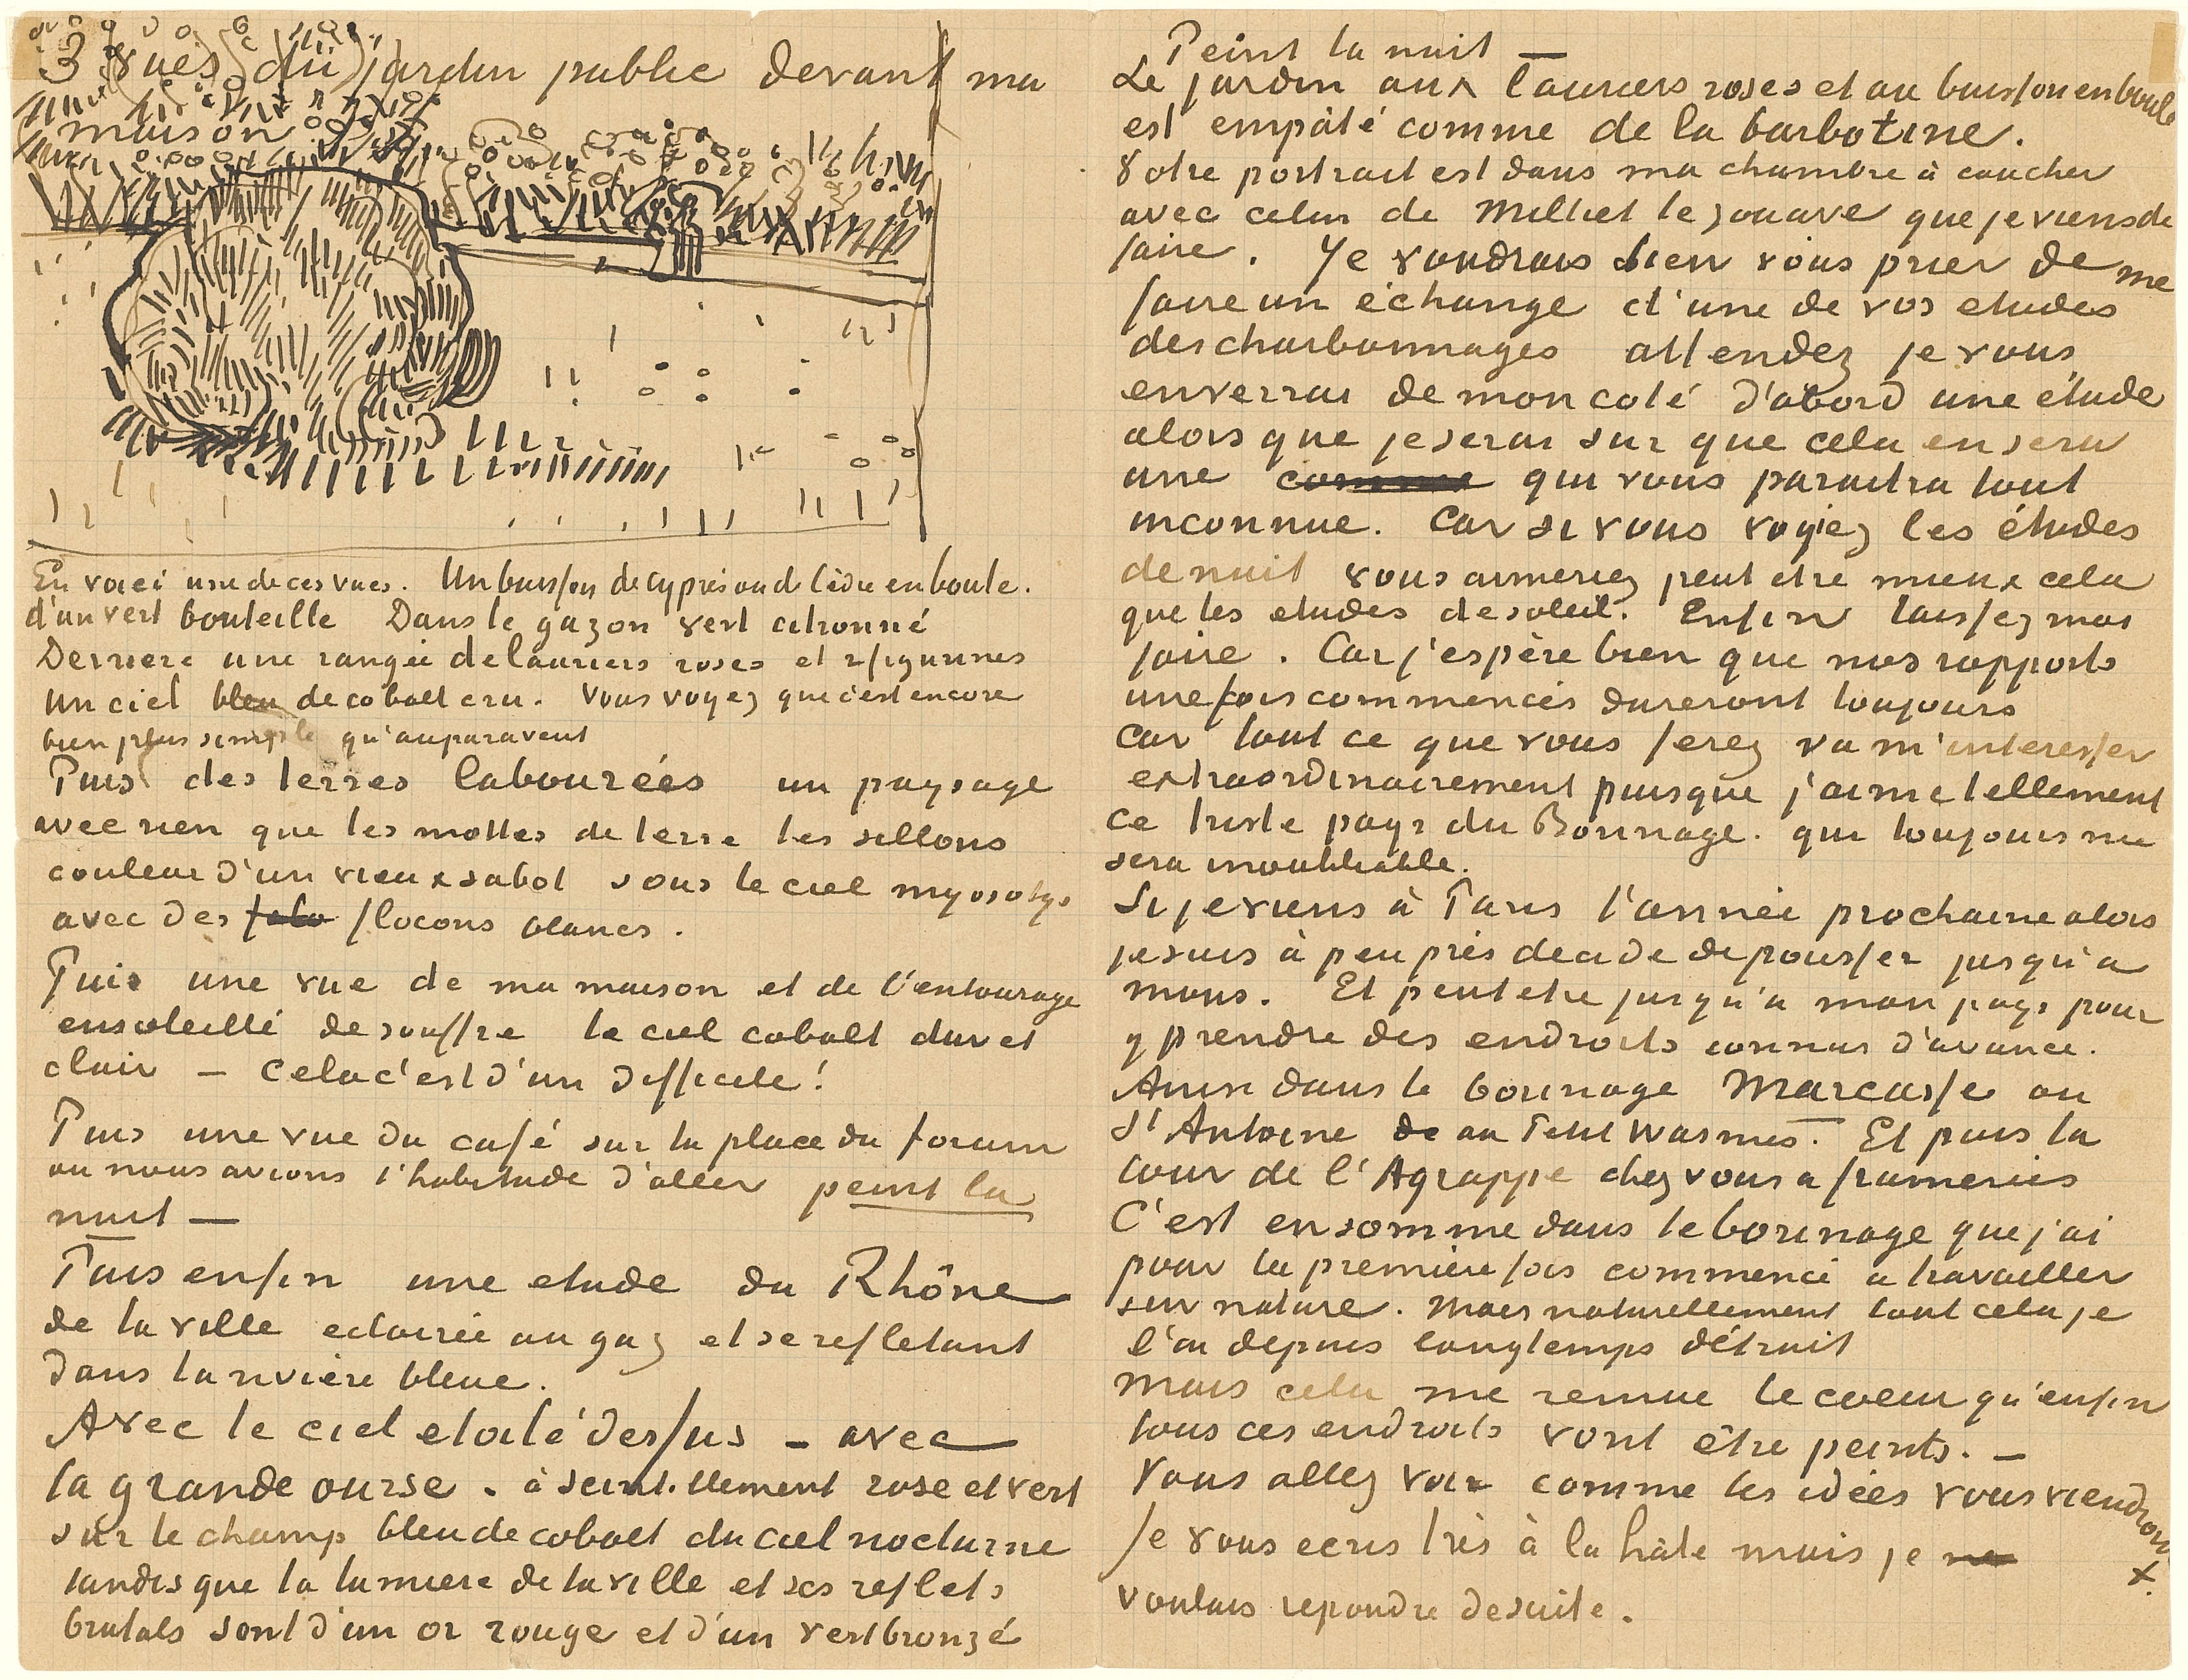 3 vues du jardin public devant ma
maison
En voici une de ces vues. Un buisson de cyprès ou de cèdre en boule.
d'un vert bouteille Dans le gazon vert citronné
Derriere une rangée de lauriers roses et 2 figurines
Un ciel bleu de cobalt cru. Vous voyez que c'est encore
bien plus simple qu'auparavent
Puis des terres labourées un paysage
avec rien que les mottes de terre les sillons
couleur d'un vieux sabot sous le ciel myosotys
avec des flocons blancs.
Puis une vue de ma maison et de l'entourage
ensoleillé de souffre le ciel cobalt dur et
clair — Cela c'est d'un difficile!
Puis une vue du café sur la place du forum
ou nous avions l'habitude d'aller peint la
nuit —
Puis enfin une etude du Rhône
de la ville eclairée au gaz et se refletant
dans la rivière bleue.
Avec le ciel etoilé dessus – avec
la grande ourse - à scintillement rose et vert
sur le champ bleu de cobalt du ciel nocturne
tandis que la lumiere de la ville et ses reflets
brutals sont d'un or rouge et d'un vert bronzé
Peint la nuit —
Le jardin aux lauriers roses et au buisson en boule
est empâté comme de la barbotine.
Votre portrait est dans ma chambre à coucher
avec celui de Milliet le zouave que je viens de
faire. Je voudrais bien vous prier de me
faire un échange d'une de vos etudes
des charbonnages attendez je vous
enverrai de mon coté d'abord une étude
alors que je serai sur que cela en sera
une comme qui vous paraitra tout
inconnue. Car si vous voyiez les études
de nuit vous aimeriez peut etre mieux cela
que les etudes de soleil. Enfin laissez moi
faire. Car j'espère bien que nos rapports
une fois commencés dureront toujours
Car tout ce que vous ferez va m'interesser
extraordinairement puisque j'aime tellement
ce triste pays du Borinage. qui toujours me
sera inoubliable.
Si je viens à Paris l'année prochaine alors
je suis à peu près decidé de pousser jusqu'a
mons. Et peut etre jusqu'a mon pays pour
y prendre des endroits connus d'avance.
Ainsi dans le borinage Marcasse ou
St Antoine de au Petit Wasmes. Et puis la
cour de l'Agrappe chez vous a frameries
C'est en somme dans le borinage que j'ai
pour la première fois commencé a travailler
sur nature. Mais naturellement tout cela je
l'ai depuis longtemps détruit
Mais cela me remue le coeur qu'enfin
tous ces endroits vont être peints. —
Vous allez voir comme les idées vous viendront
Je vous ecris très à la hâte mais je ne
voulais repondre desuite.